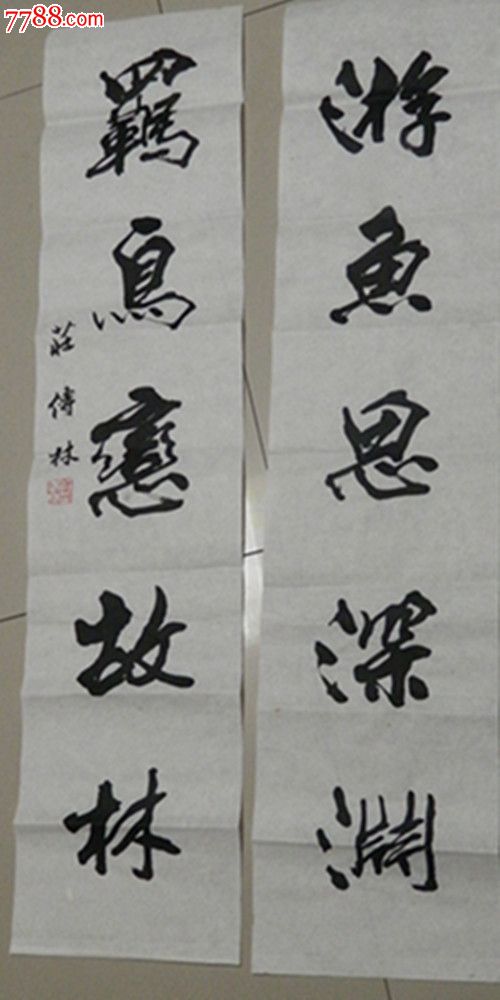 7788.com
游魚思深淵
羈鳥戀故林
莊傳林